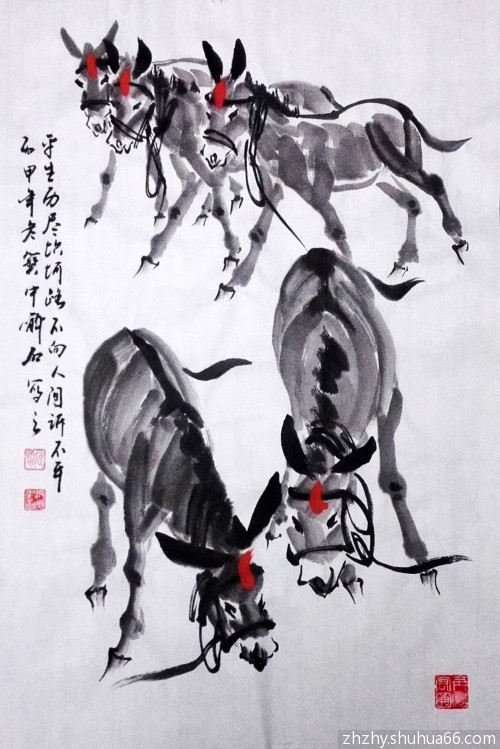 平生历尽坎坷路不向人间诉不平
丙申年冀中石写之
zhzhy.shuhua66.com